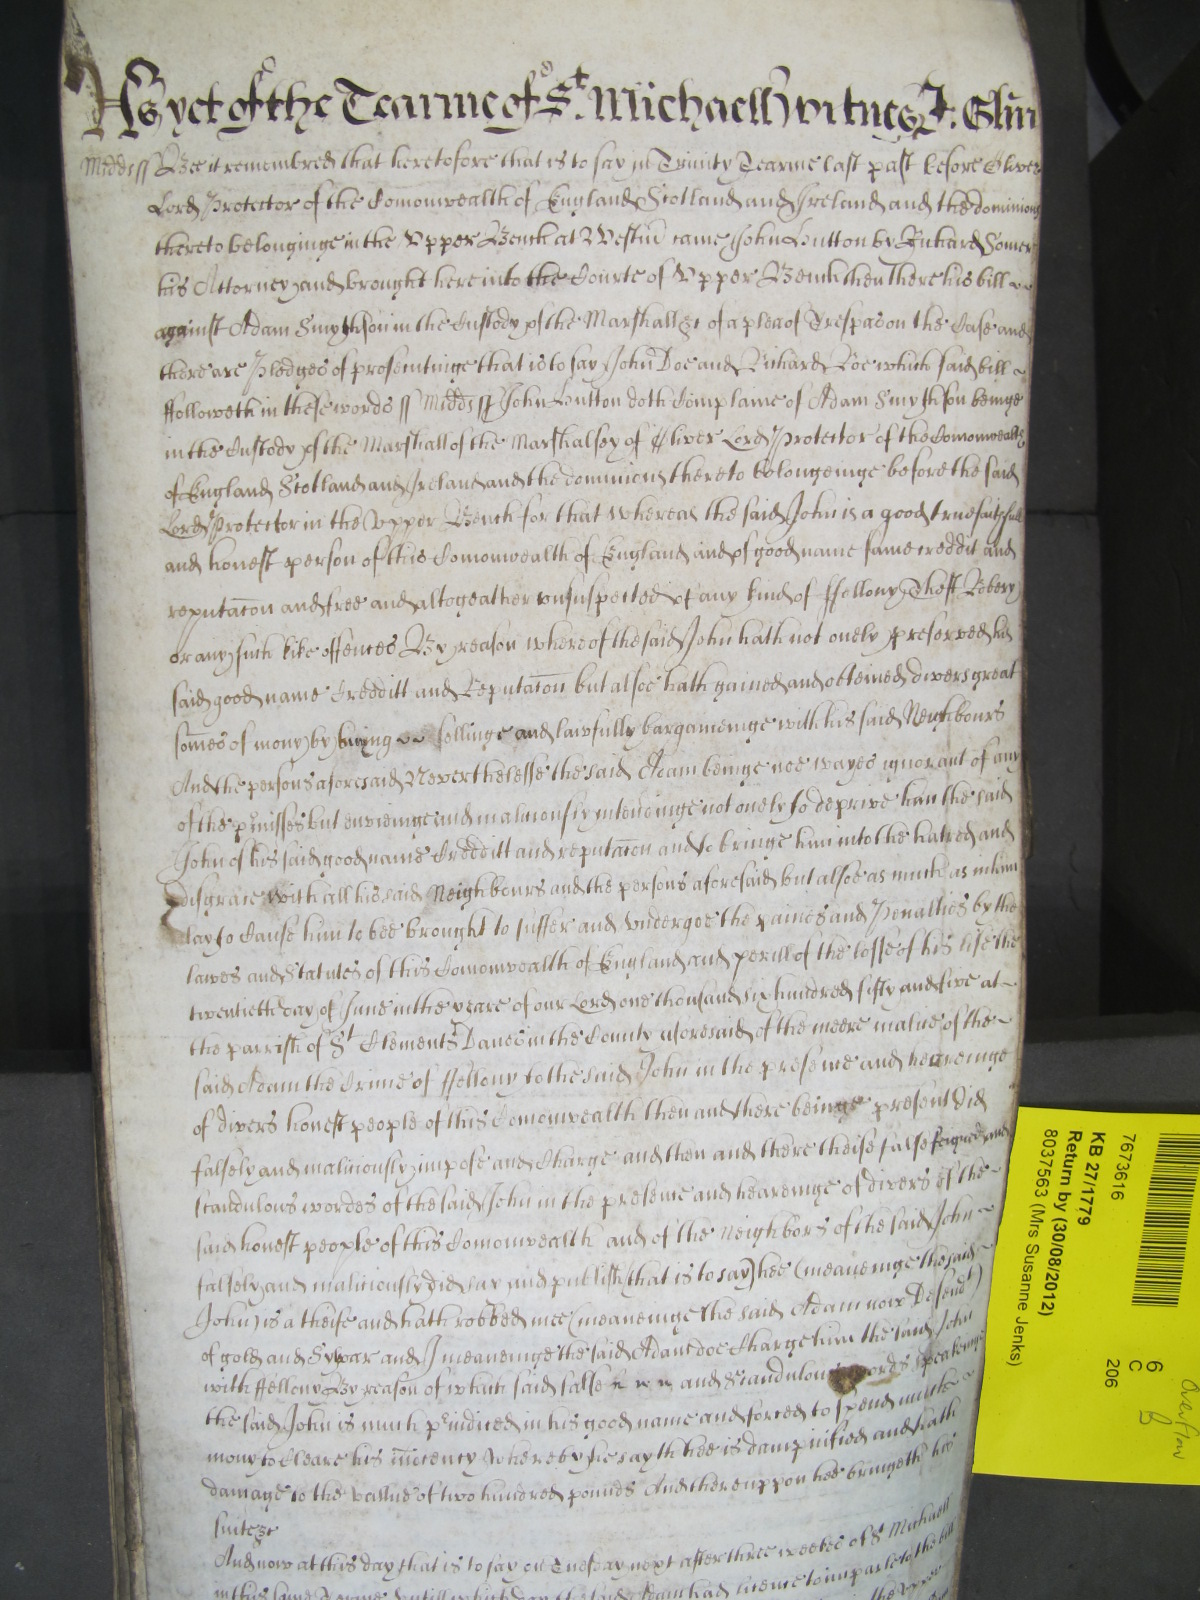 As yet of the Tearme of St. Michaell witnes J: Glin
Midds ss Bee it remembred that heretofore that is to say in Trinity Tearme last past before Oliver
Lord Protector of the Comonwealth of England Scotland and Ireland and the dominions
thereto belonginge in the Upper Bench at Westm came John Hutton by Richard Somer
his Attorney and brought here into the Courte of Upper Bench then there his bill
against Adam Smythson in the Custody of the Marshall &c of a plea of Trespas on the Case and
there are Pledges of prosecutinge that is to say John Doe and Richard Roe which said bill
ffolloweth in these words ss Midds ss John Hutton doth Complaine of Adam Smythson beinge
in the Custody of the Marshall of the Marshalsey of Oliver Lord Protector of the Comonwealth
of England Scotland and Ireland and the dominions thereto belongeinge before the said
Lord Protector in the Upper Bench for that whereas the said John is a good true faithfull
and honest person of this Comonwealth of England and of good name fame creddit and
reputacon and free and altogeather unsuspected of any kind of ffellony Theft Robery
or any such like offences By reason whereof the said John hath not onely preserved his
said good name Credditt and Reputacon but alsoe hath gained and obteined divers great
somes of mony by buying sellinge and lawfully bargaineinge with his said Neighbours
And the persons aforesaid Neverthelesse the said Adam beinge noe wayes ignorant of any
of the pmisses but envieinge and maliciously intendinge not onely to deprive him the said
John of his said good name Credditt and reputacon and to bringe him into the hatred and
disgrace with all his said Neighbours and the persons aforesaid but alsoe as much as in him
lay to Cause him to bee brought to suffer and undergoe the paines and Penalties by the
lawes and statutes of this Comonwealth of England and perill of the losse of his life the
twentieth day of June in the yeare of our Lord one thousand six hundred fifty and five at
the parrish of St Clements Danes in the County aforesaid of the meere malice of the
said Adam the Crime of ffellony to the said John in the presence and heareinge
of divers honest people of this Comonwealth then and there beinge present did
falsely and maliciously impose and Charge and then and there theise false feigned and
scandulous wordes of the said John in the presence and heareinge of divers of the
said honest people of this Comonwealth and of the Neighbors of the said John
falsely and maliciously did say and publish (that is to say) hee (meaneinge the said
John) is a theife and hath robbed mee (meaneinge the said Adam now Defendt)
of gold and Sylvar and I meaneinge the said Adam doe Charge him the said John
with ffellony By reason of which said false and Scandulous words speakeinge
the said John is much pjudiced in his good name and forced to spend much
mony to Cleare his inocency Whereby he sayth hee is dampnified and hath
damage to the vallue of two hundred pounds And thereuppon hee bringeth his
suite &c
And now at this day that is to say on Tuesday next after three weekes of St Michaell
in this same Tearme untill which day the said Adam had licence to imparle to the bill
7673616
KB 27/1779
Return by (30/08/2012)
8037563 (Mrs Susanne Jenks)
6
C
206
Overflow
B